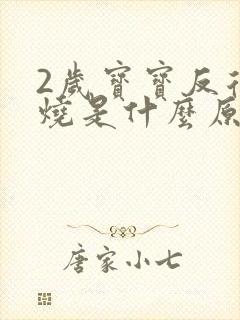 2歲寶寶反
燒是什麼原
唐家小七